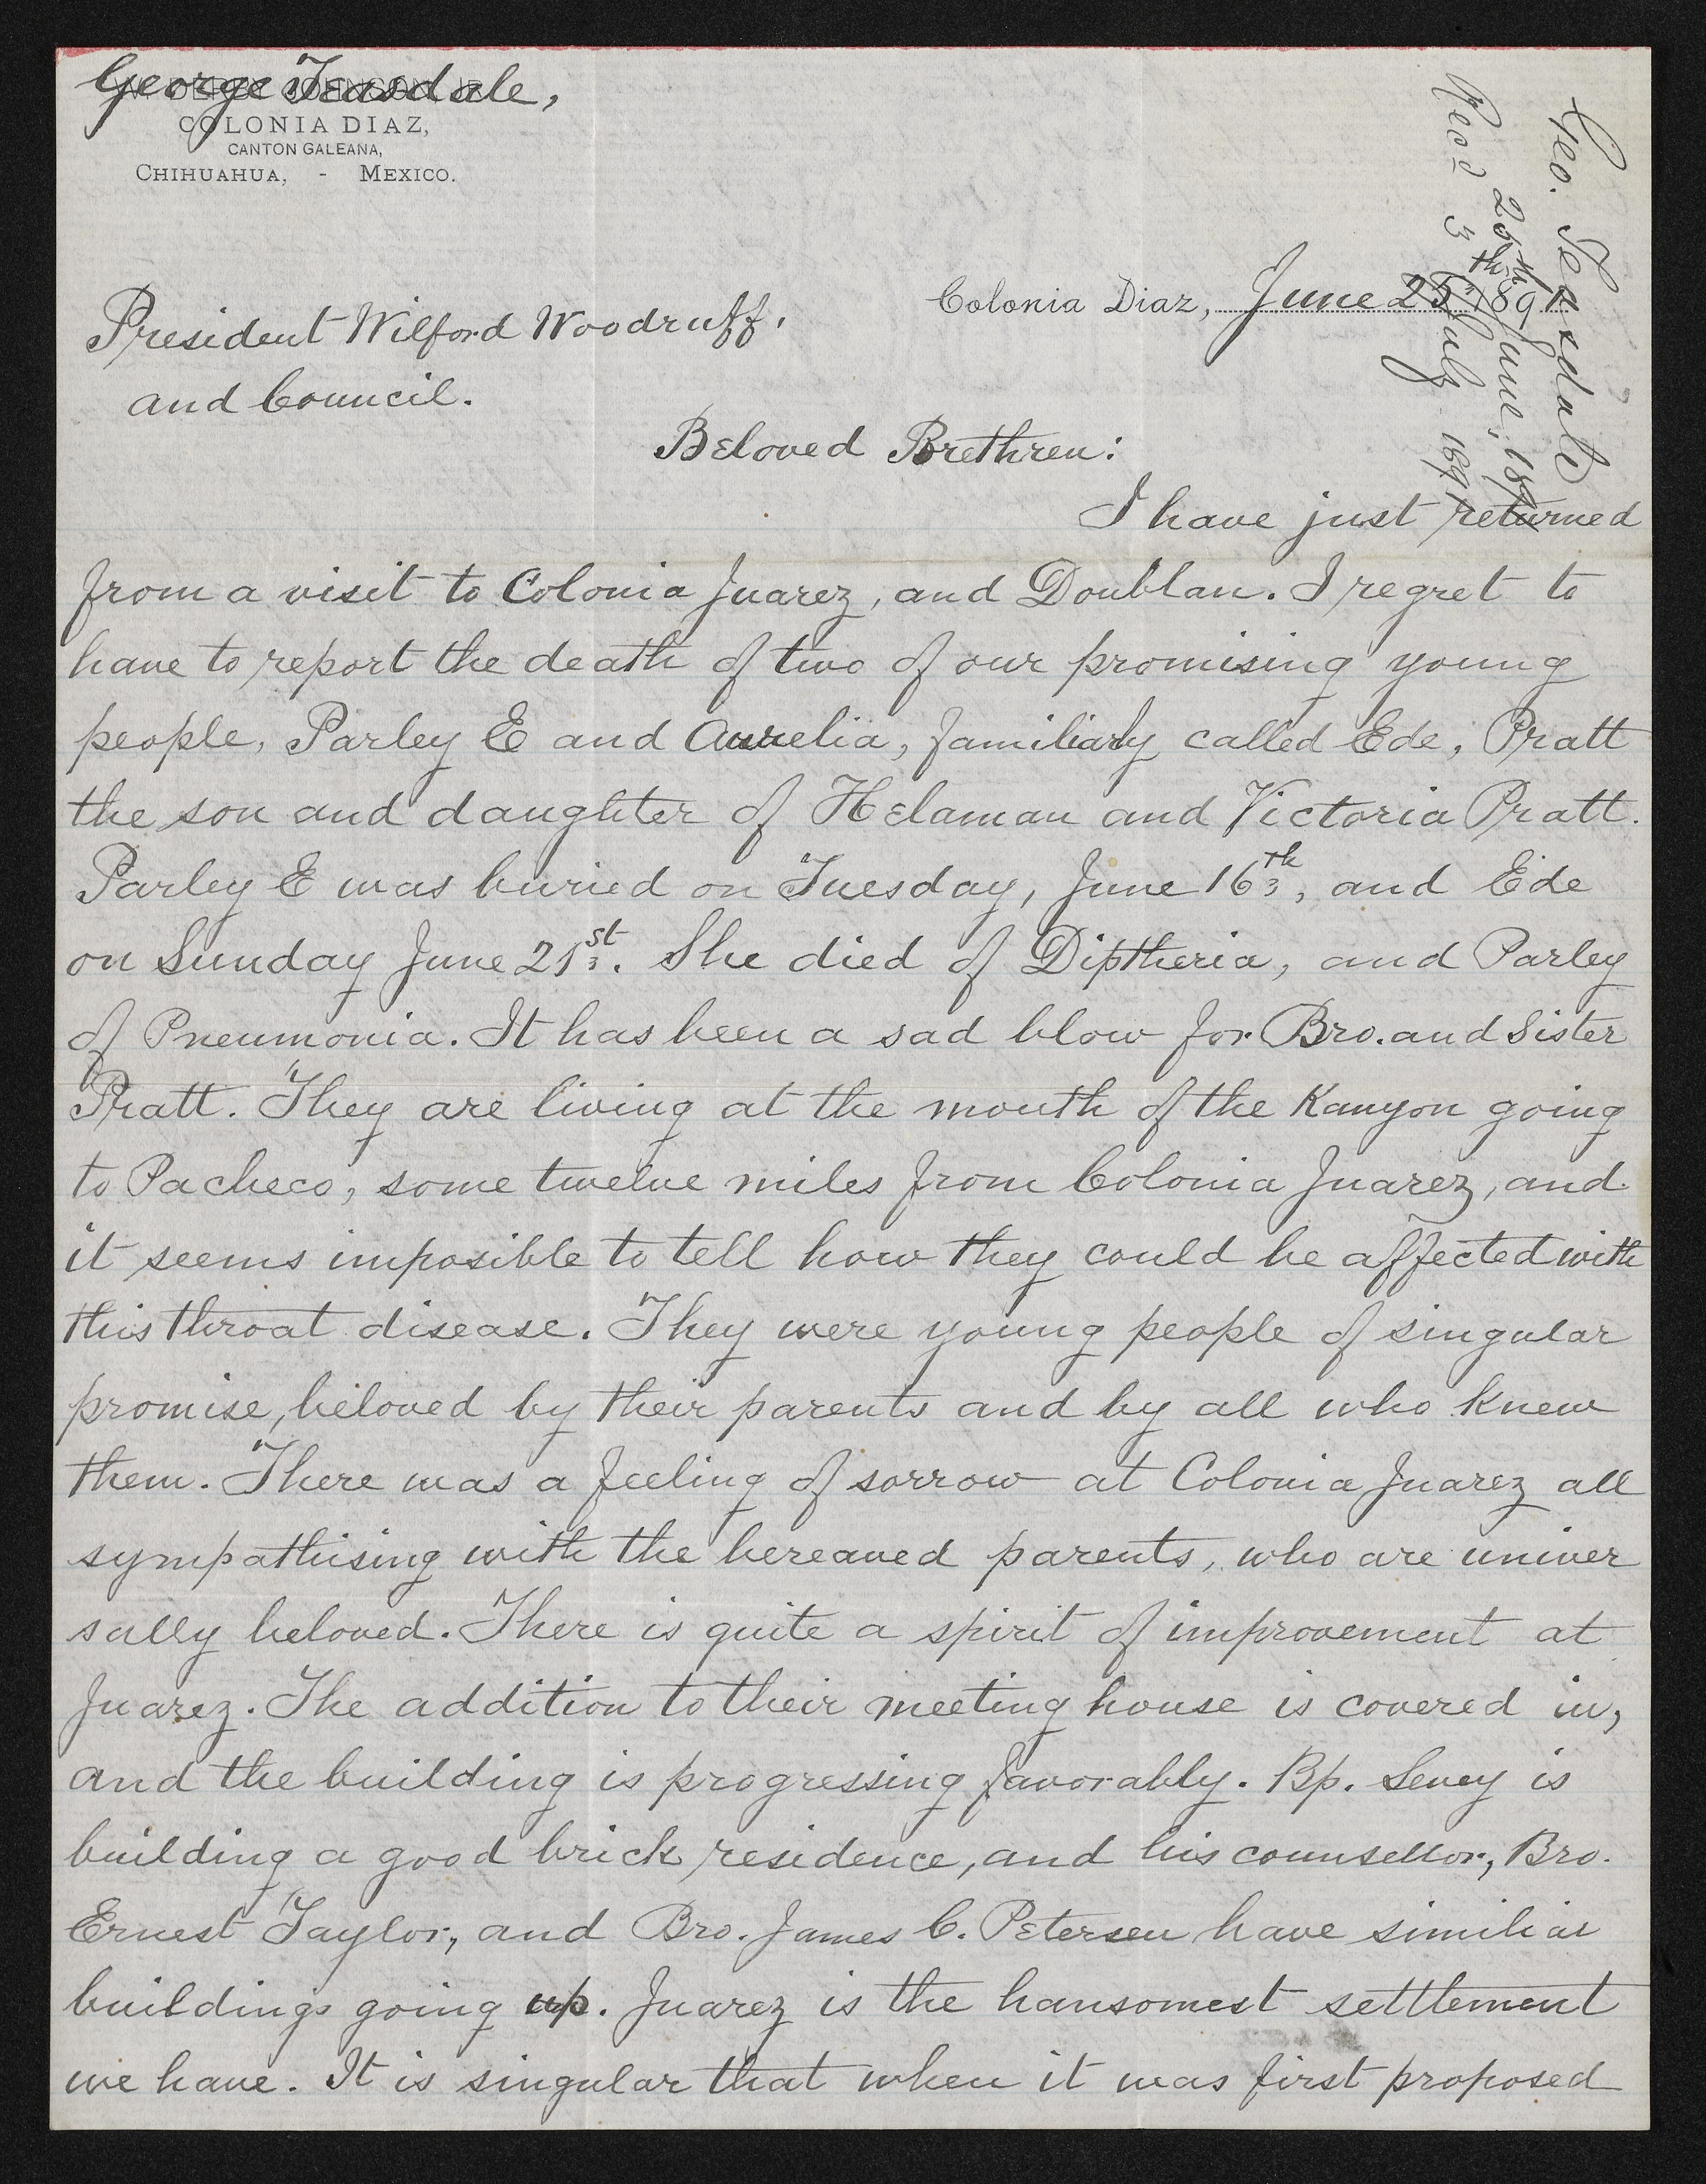 George Teasdale,
W. DERBY JOHNSON, JR.
COLONIA DIAZ,
CANTON GALEANA,
CHIHUAHUA, - MEXICO.
Geo. Teasdale
25th June, 1891
Recd 3 July 1891
Colonia Diaz, June 25th 1891
President Wilford Woodruff,
and Council.
Beloved Brethren:
I have just returned
from a visit to Colonia Juarez, and Doublan. I regret to
have to report the death of two of our promising young
people, Parley E and Aurelia, familiarly called Ede, Pratt
the son and daughter of Helaman and Victoria Pratt.
Parley E was buried on Tuesday, June 16th, and Ede
on Sunday June 21st. She died of Diptheria, and Parley
of Pneumonia. It has been a sad blow for Bro. and Sister
Pratt. They are living at the mouth of the Kanyon going
to Pacheco, some twelve miles from Colonia Juarez, and
it seems imposible to tell how they could be affected with
this throat disease. They were young people of singular
promise, beloved by their parents and by all who knew
them. There was a feeling of sorrow at Colonia Juarez all
sympathising with the bereaved parents, who are univer
sally beloved. There is quite a spirit of improvement at
Juarez. The addition to their meeting house is covered in,
and the building is progressing favorably. Bp. Sevey is
building a good brick residence, and his counsellor, Bro.
Ernest Taylor, and Bro. James C. Petersen have similiar
buildings going up. Juarez is the hansomest settlement
we have. It is singular that when it was first proposed